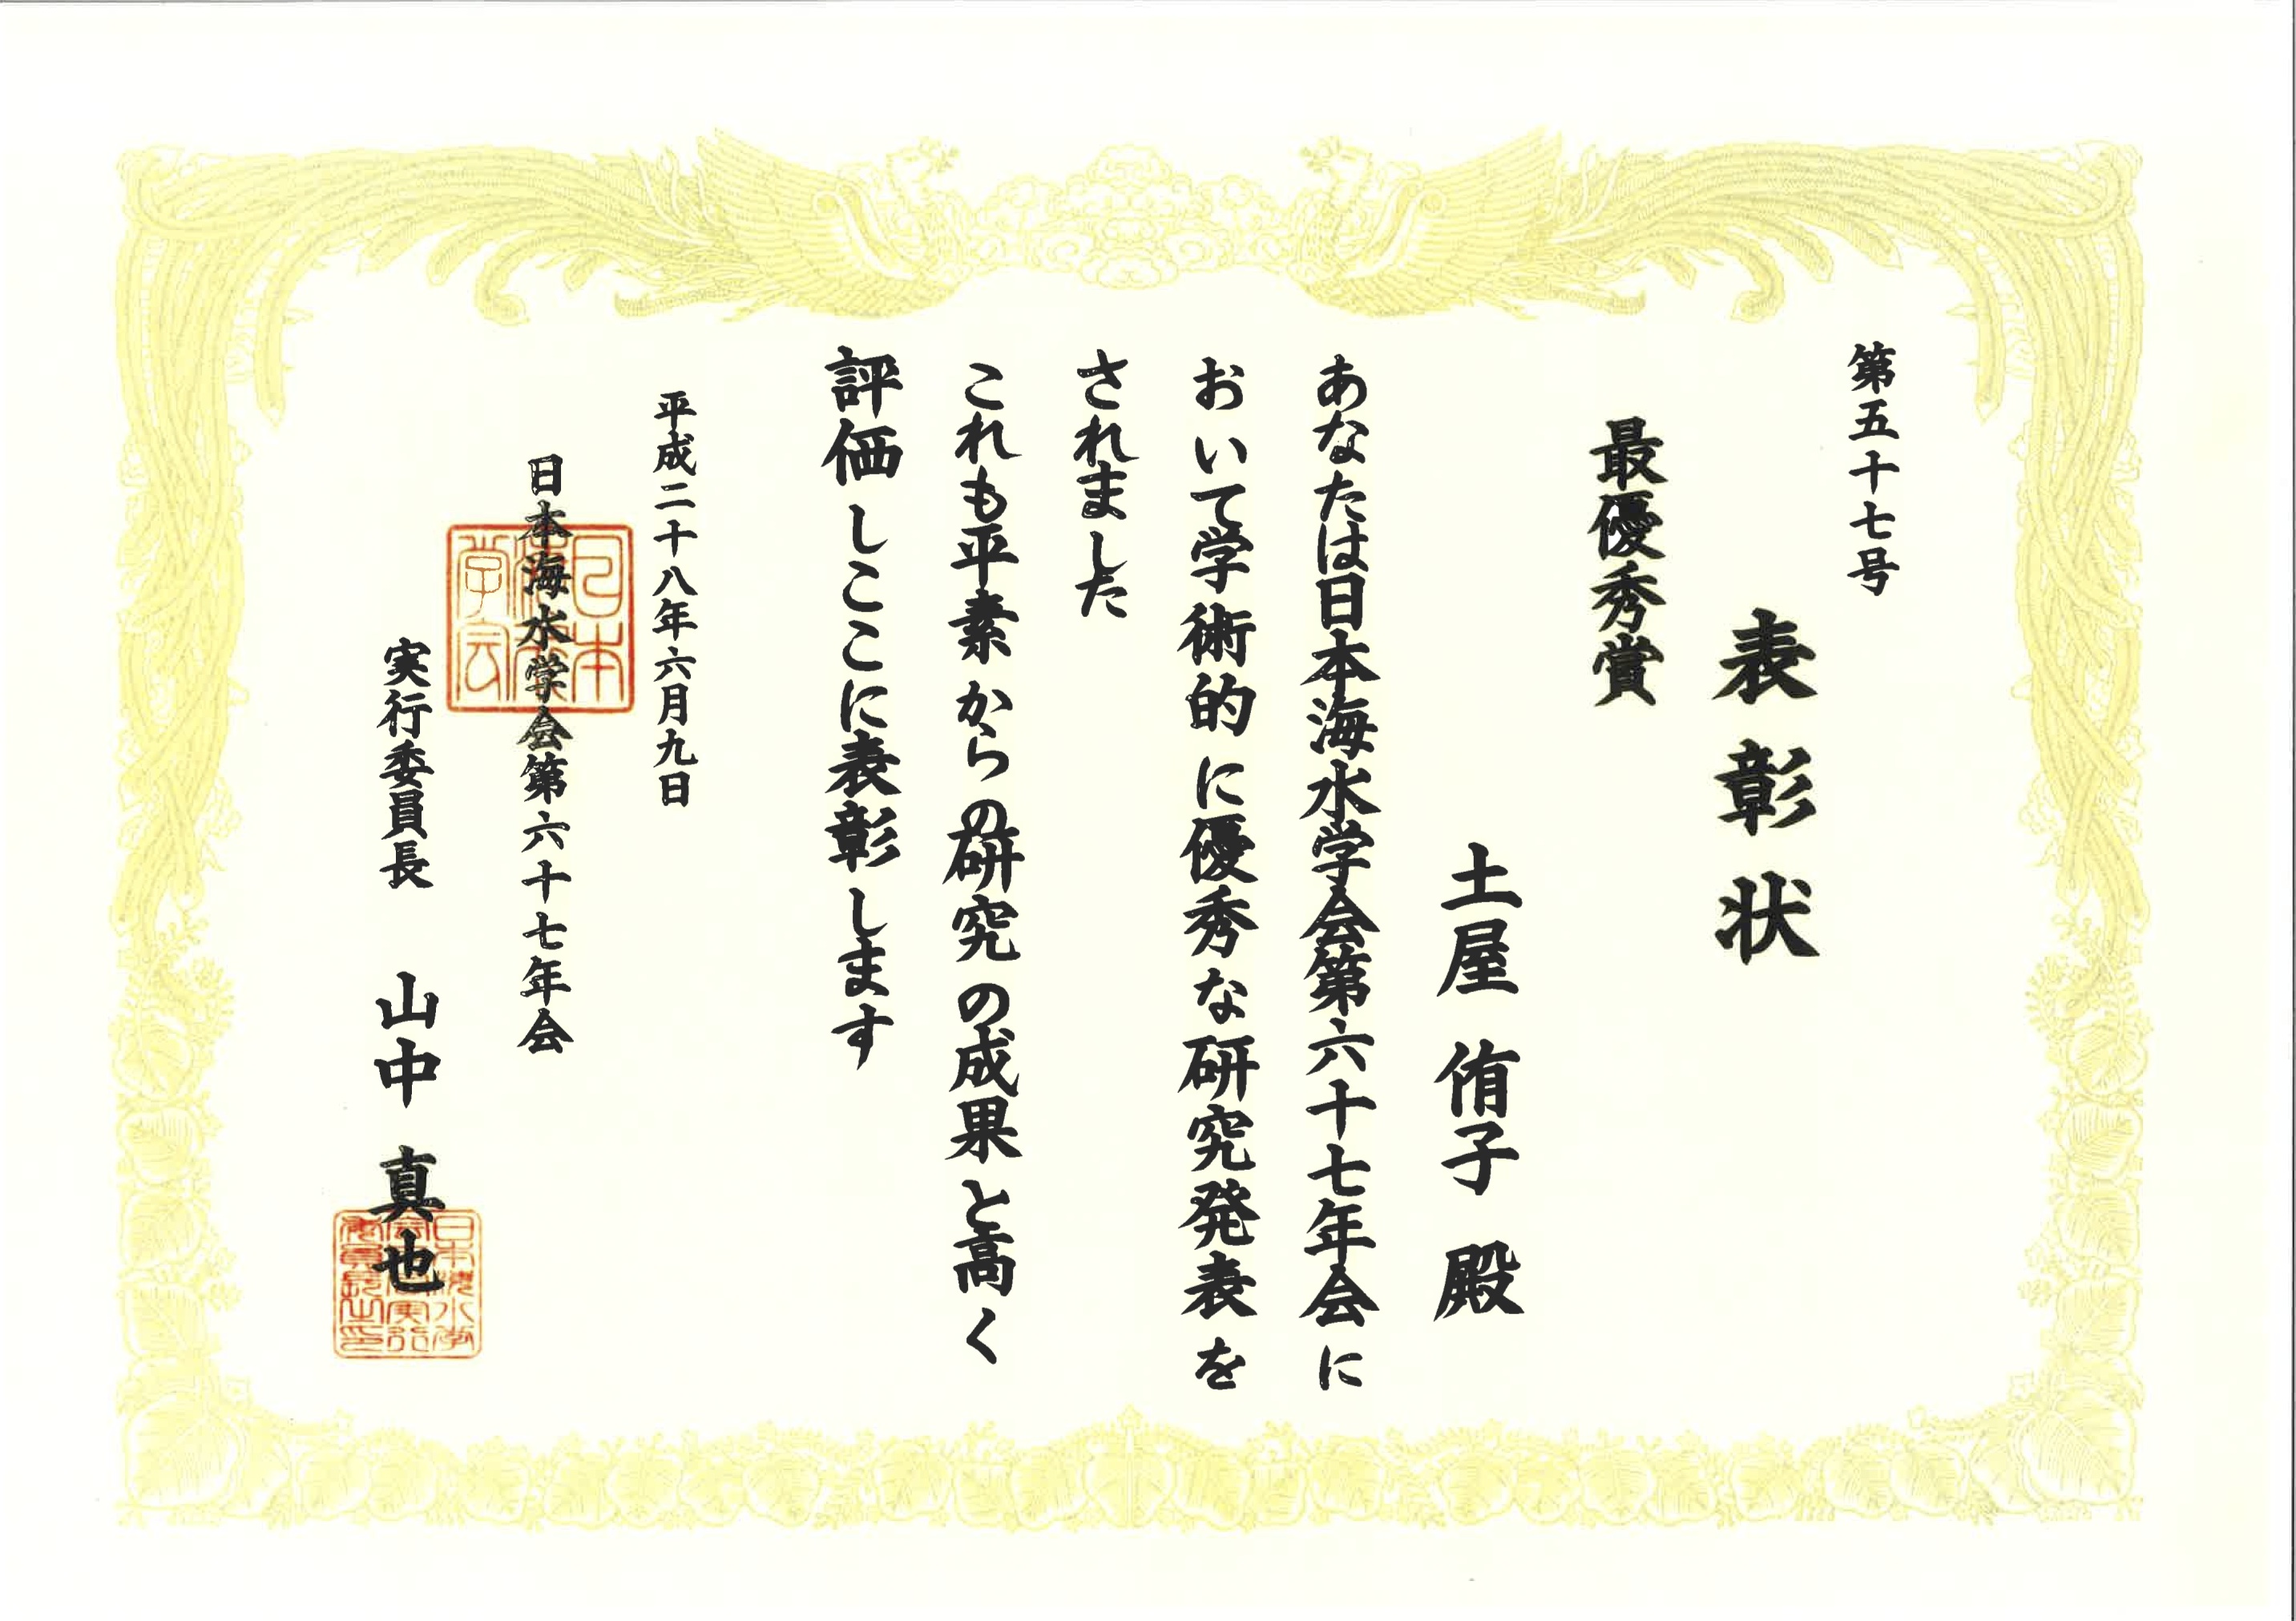 第五十七号
表彰状
最優秀賞
土屋 侑子 殿
あなたは日本海水学会第六十七年会に
おいて学術的に優秀な研究発表を
されました
これも平素からの研究の成果と高く
評価しここに表彰します
平成二十八年六月九日
日本海水学会第六十七年会
実行委員長 山中 真也